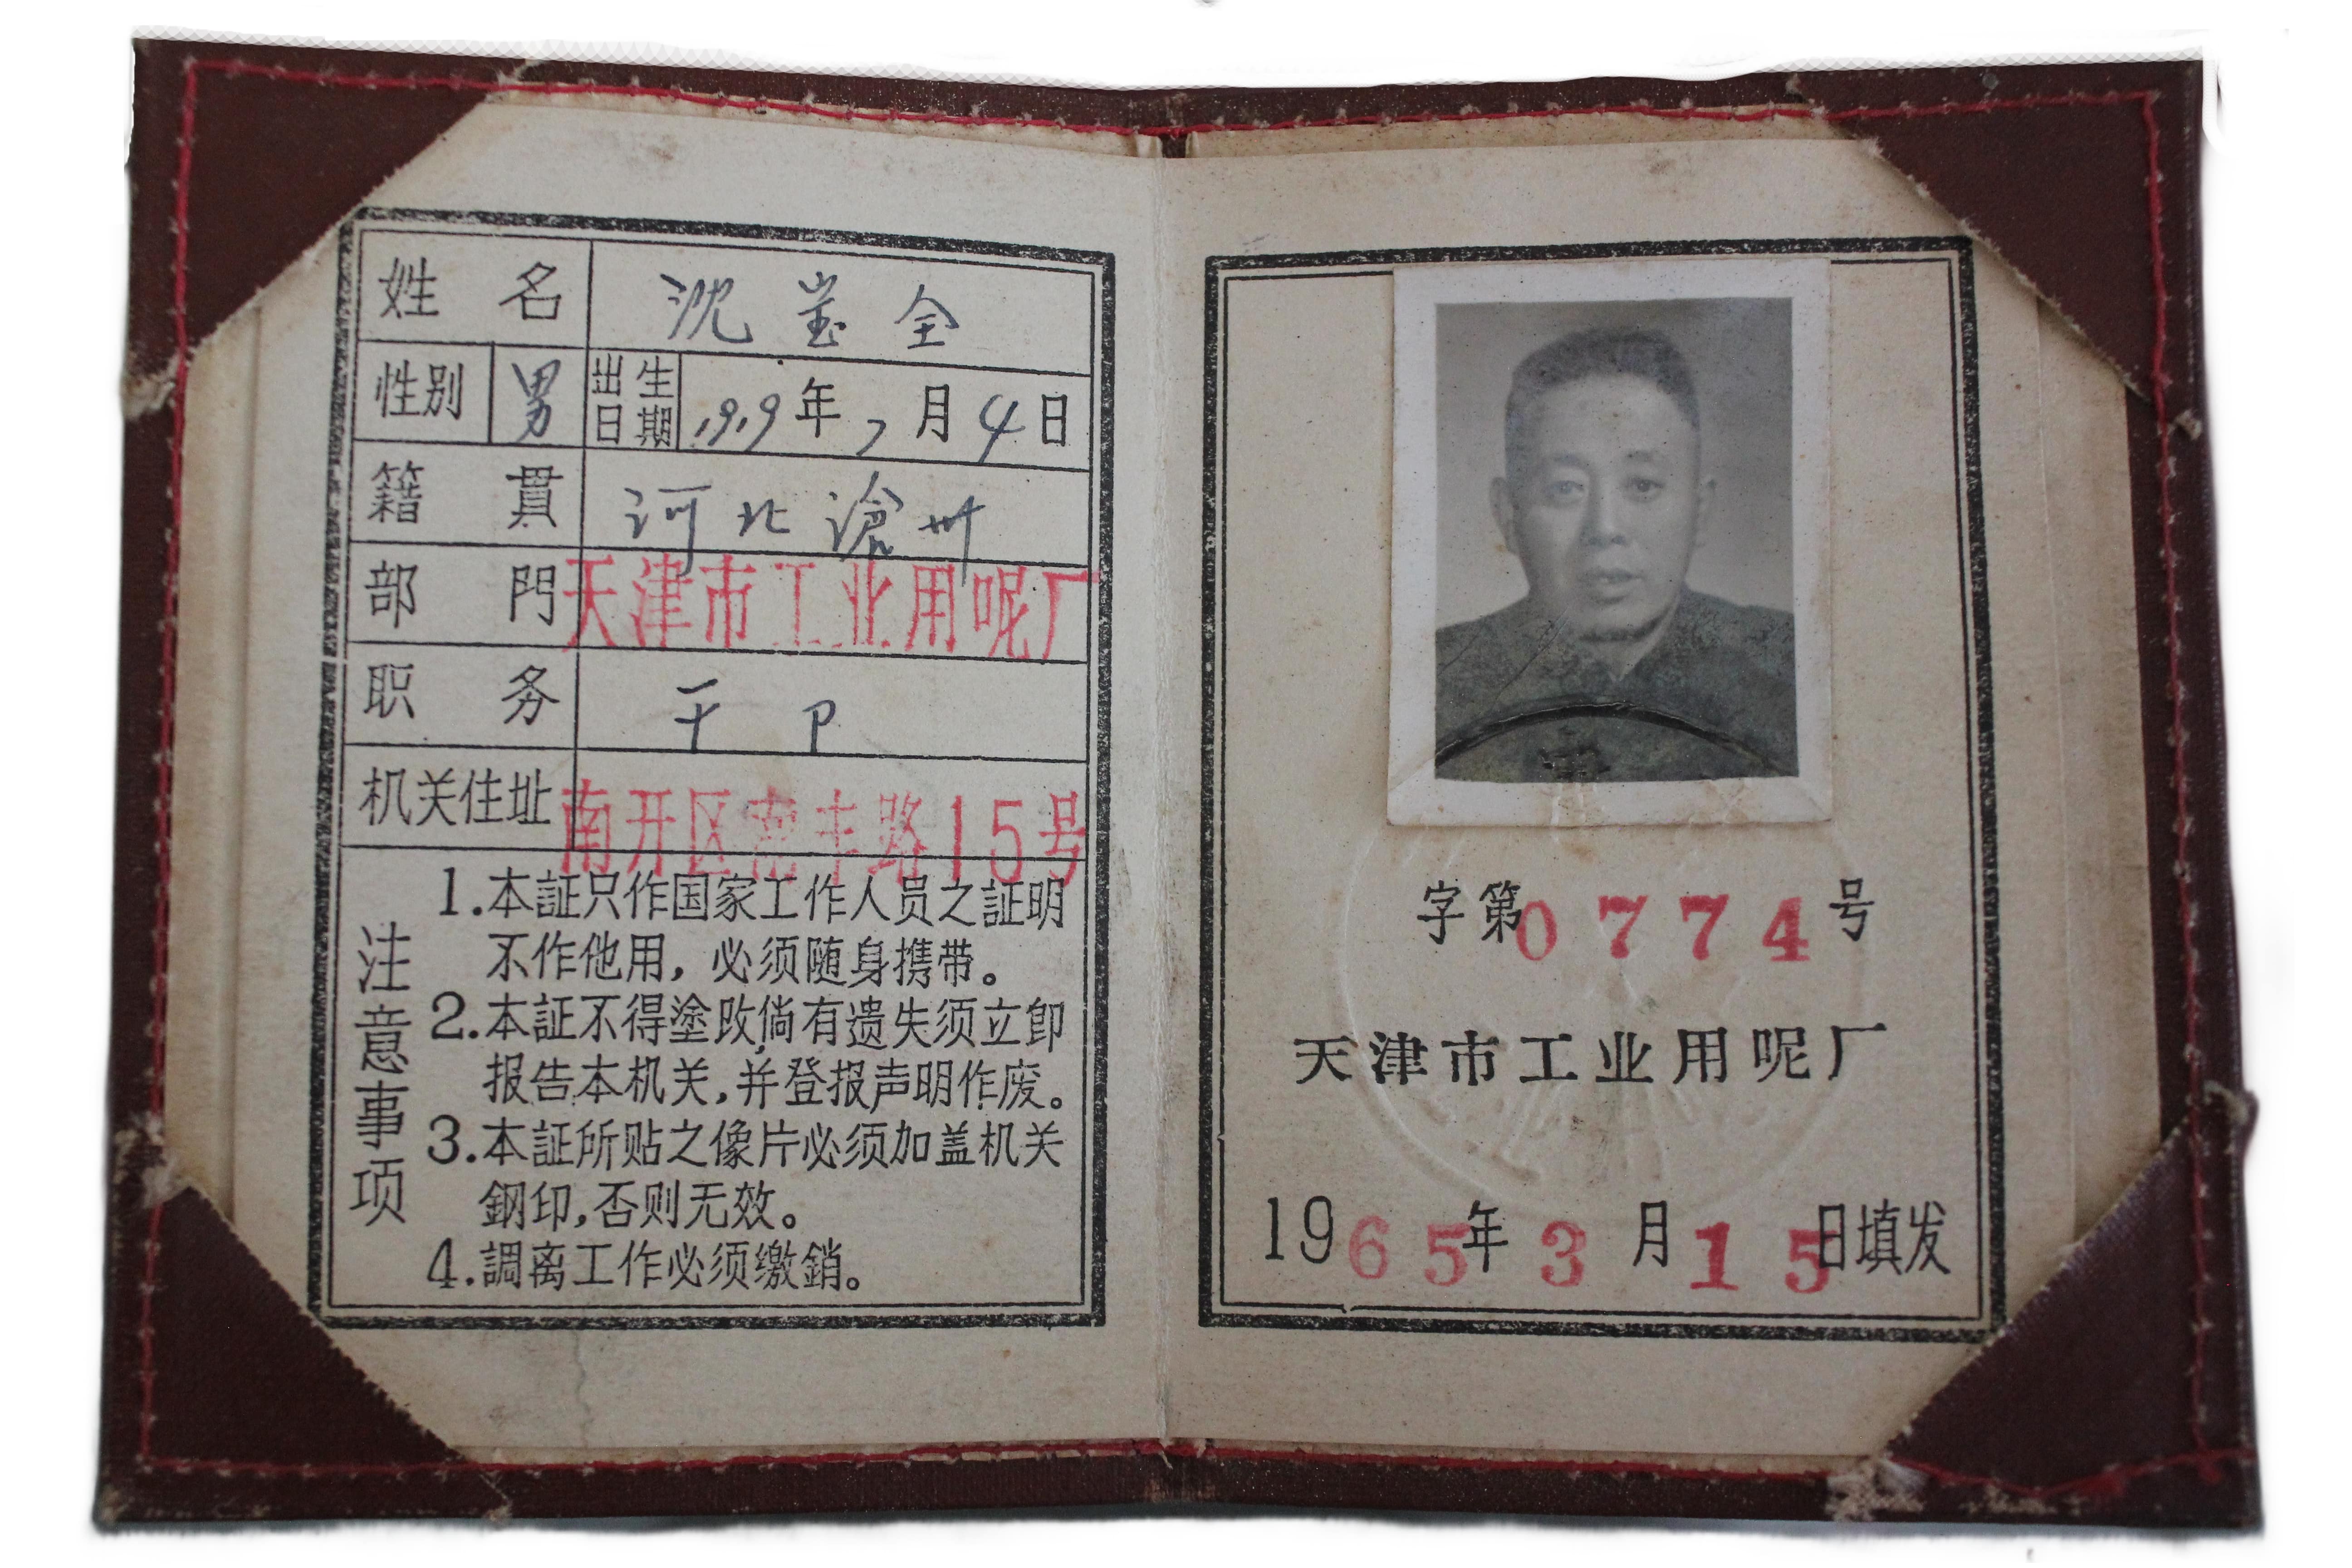 姓名 沈 全
性别 男 出生日期 1919年7月4日
籍貫 河北滄州
部門 天津市工业用呢厂
职务 干卩
机关住址 南开区 丰路15号
注意事项
1.本証只作国家工作人员之証明
不作他用，必须随身携带。
2.本証不得塗改,倘有遗失须立卽
报告本机关,并登报声明作废。
3.本証所贴之像片必须加盖机关
鋼印,否则无效。
4.調离工作必须缴銷。
字第0774号
天津市工业用呢厂
1965年3月15日填发